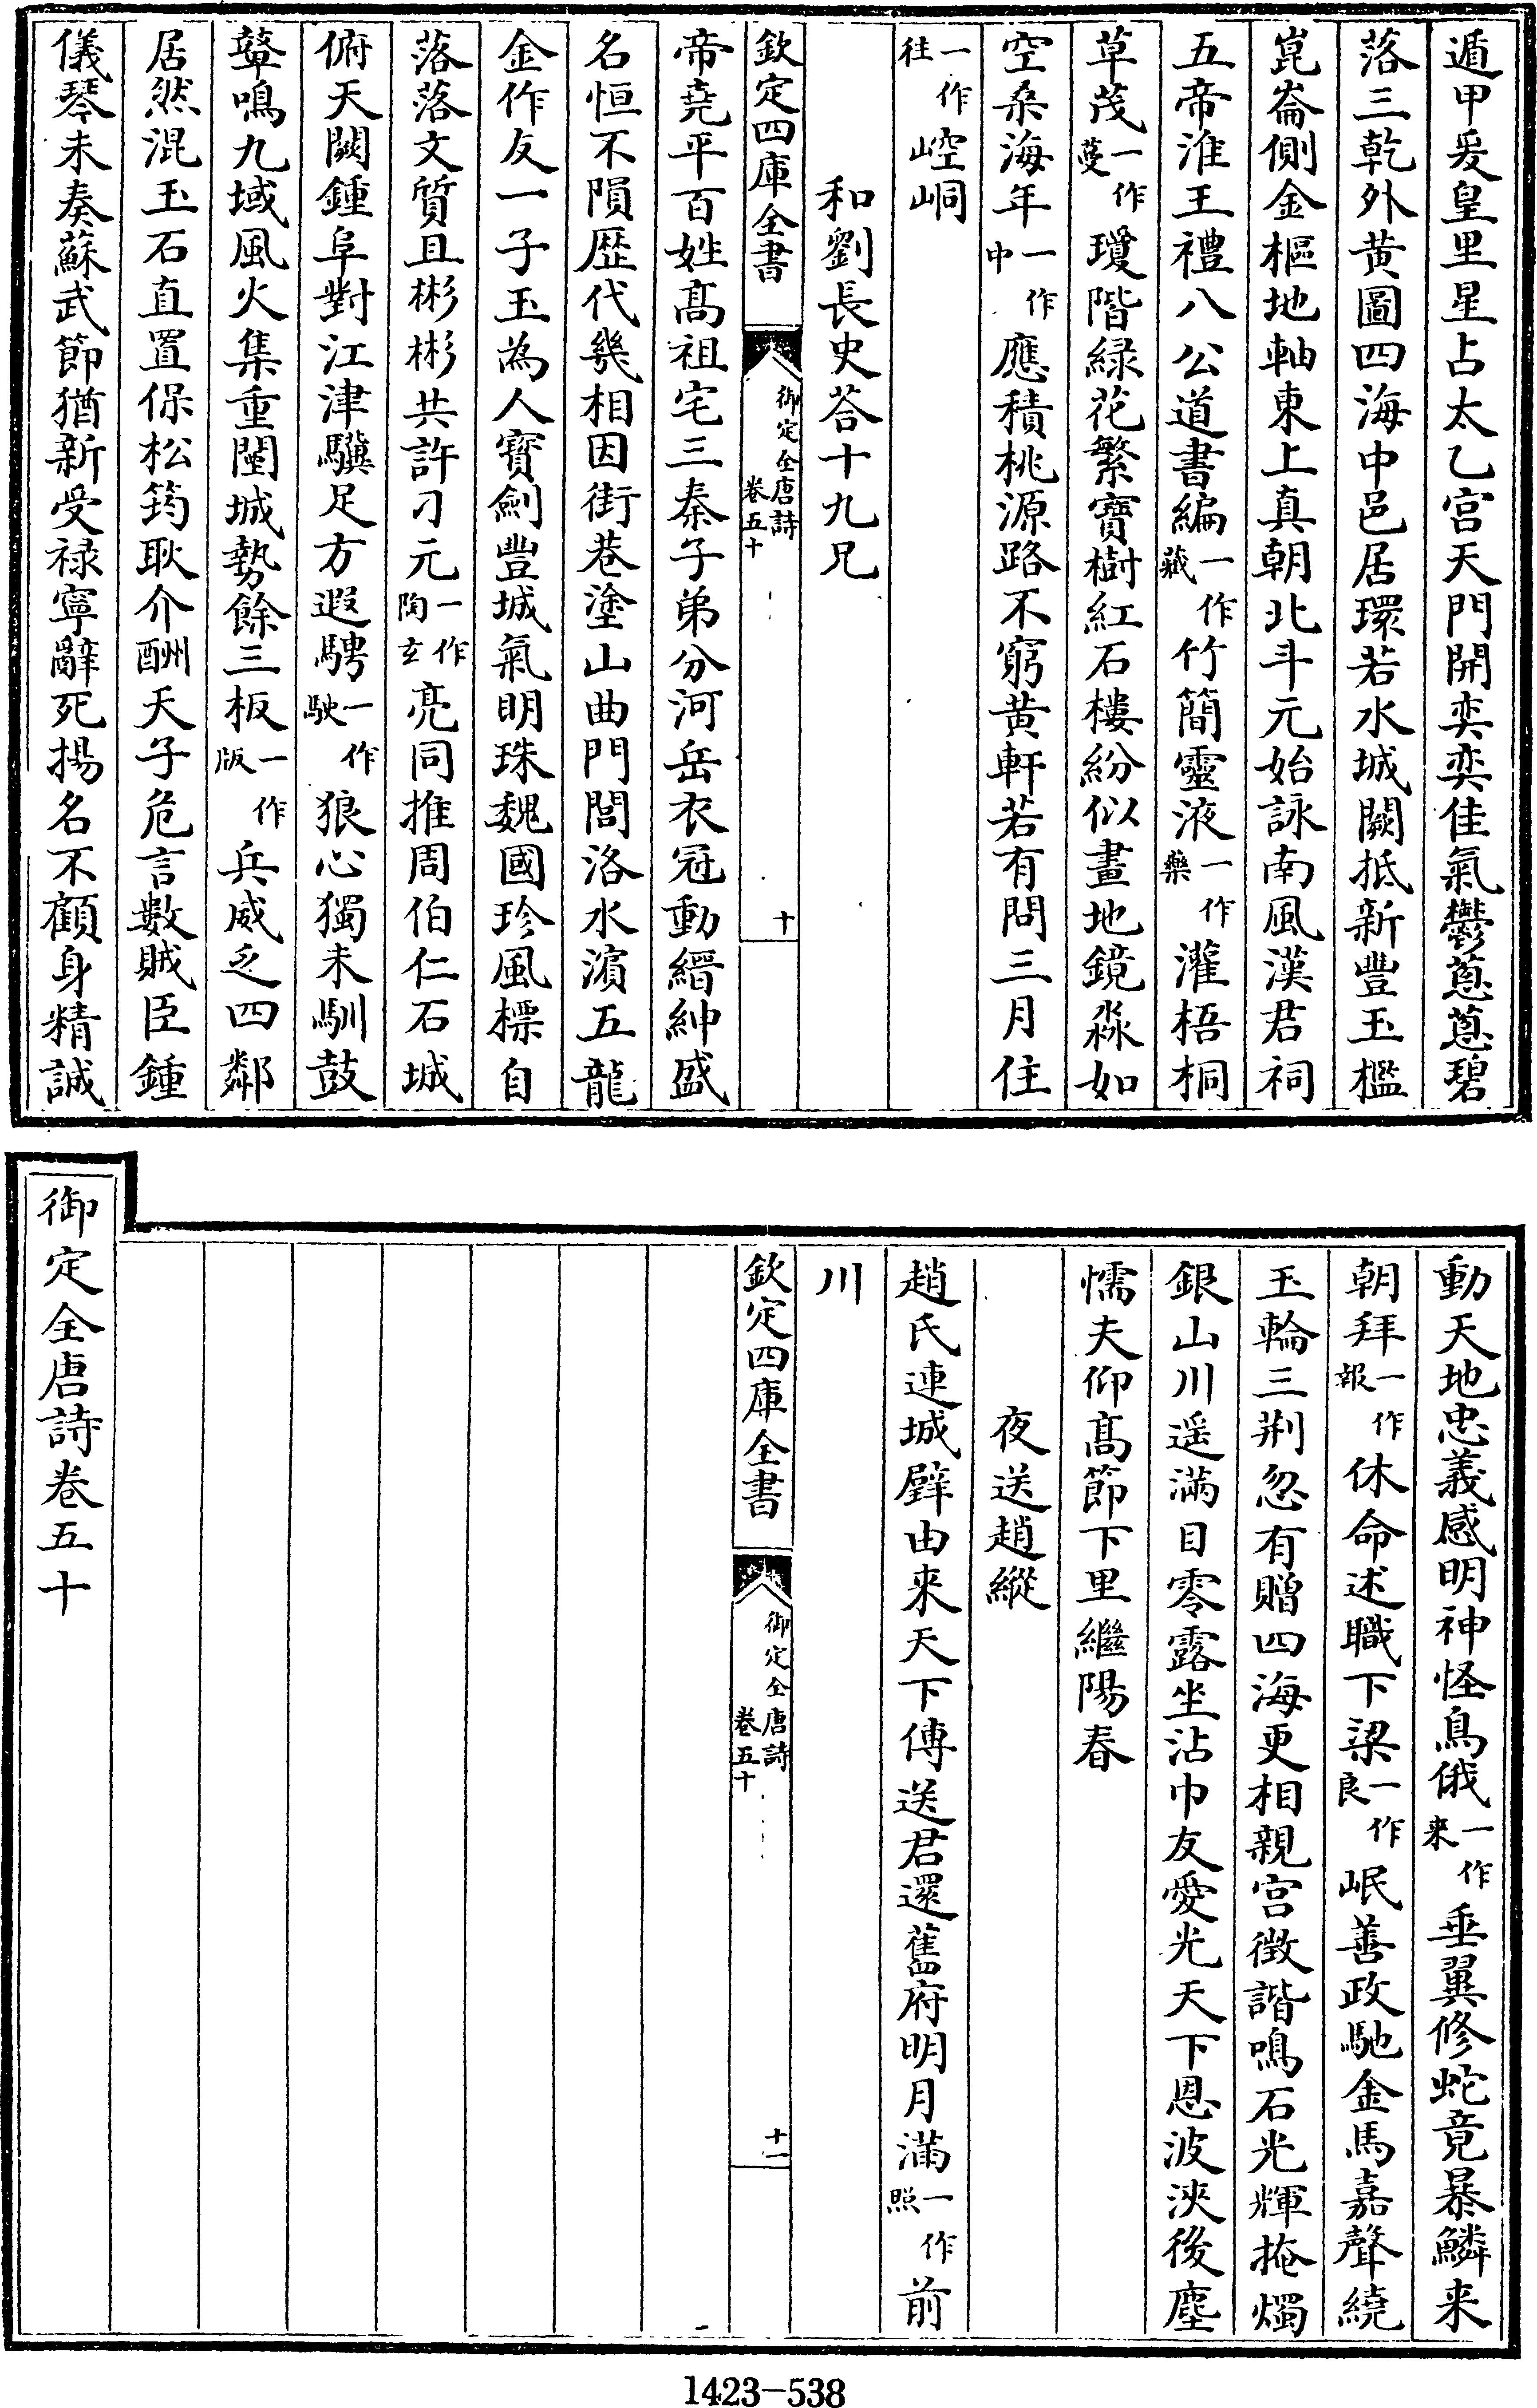 遁甲爰皇里星占太乙宫天門開奕奕佳氣鬱葱葱碧
落三乾外黄圖四海中邑居環若水城闕抵新豐玉檻
崑崙側金樞地軸東上真朝北斗元始詠南風漢君祠
五帝淮王禮八公道書編一作藏竹簡靈液一作藥灌梧桐
草茂一作蔓瓊階緑花繁寶樹紅石樓紛似畫地鏡淼如
空桑海年一作中應積桃源路不窮黄軒若有問三月住
一作往崆峒
和劉長史荅十九兄
欽定四庫全書 御定全唐詩卷五十 十
帝堯平百姓髙祖宅三秦子弟分河岳衣冠動縉紳盛
名恒不隕歴代幾相因街巷塗山曲門閭洛水濵五龍
金作友一子玉為人寳劍豐城氣明珠魏國珍風標自
落落文質且彬彬共許刁元一作陶玄亮同推周伯仁石城
俯天闕鍾阜對江津驥足方遐騁一作駛狼心獨未馴鼓
鼙鳴九域風火集重闉城勢餘三板一作版兵威乏四鄰
居然混玉石直置保松筠耿介酬天子危言數賊臣鍾
儀琴未奏蘇武節猶新受禄寧辭死揚名不顧身精誠
動天地忠義感明神怪鳥俄一作来垂翼修蛇竟暴鱗来
朝拜一作報休命述職下梁一作良岷善政馳金馬嘉聲繞
玉輪三荆忽有贈四海更相親宫徴諧鳴石光輝掩燭
銀山川遥滿目零露坐沾巾友愛光天下恩波浹後塵
懦夫仰髙節下里繼陽春
夜送趙縱
趙氏連城璧由来天下傳送君還舊府明月滿一作照前
川
欽定四庫全書 御定全唐詩卷五十 十一
御定全唐詩卷五十
1423-538